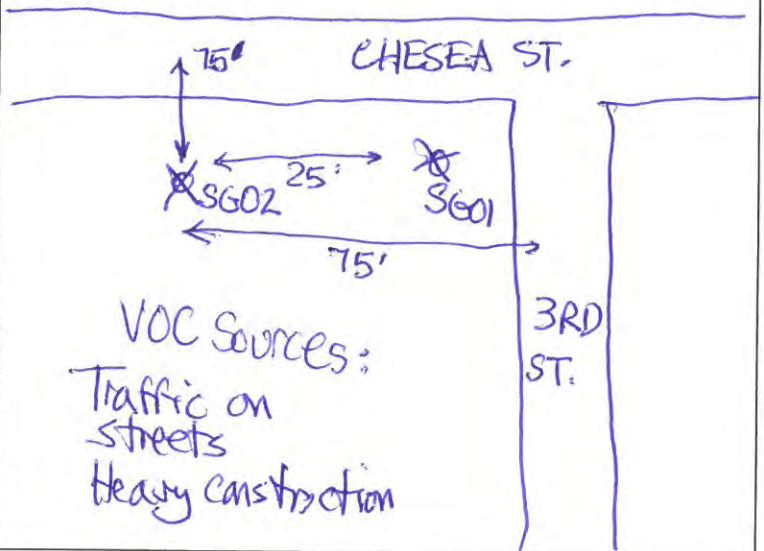 75'
CHESEA ST.
25'
SG02
SG01
75'
3RD
ST.
VOC Sources:
Traffic on
streets
Heavy construction